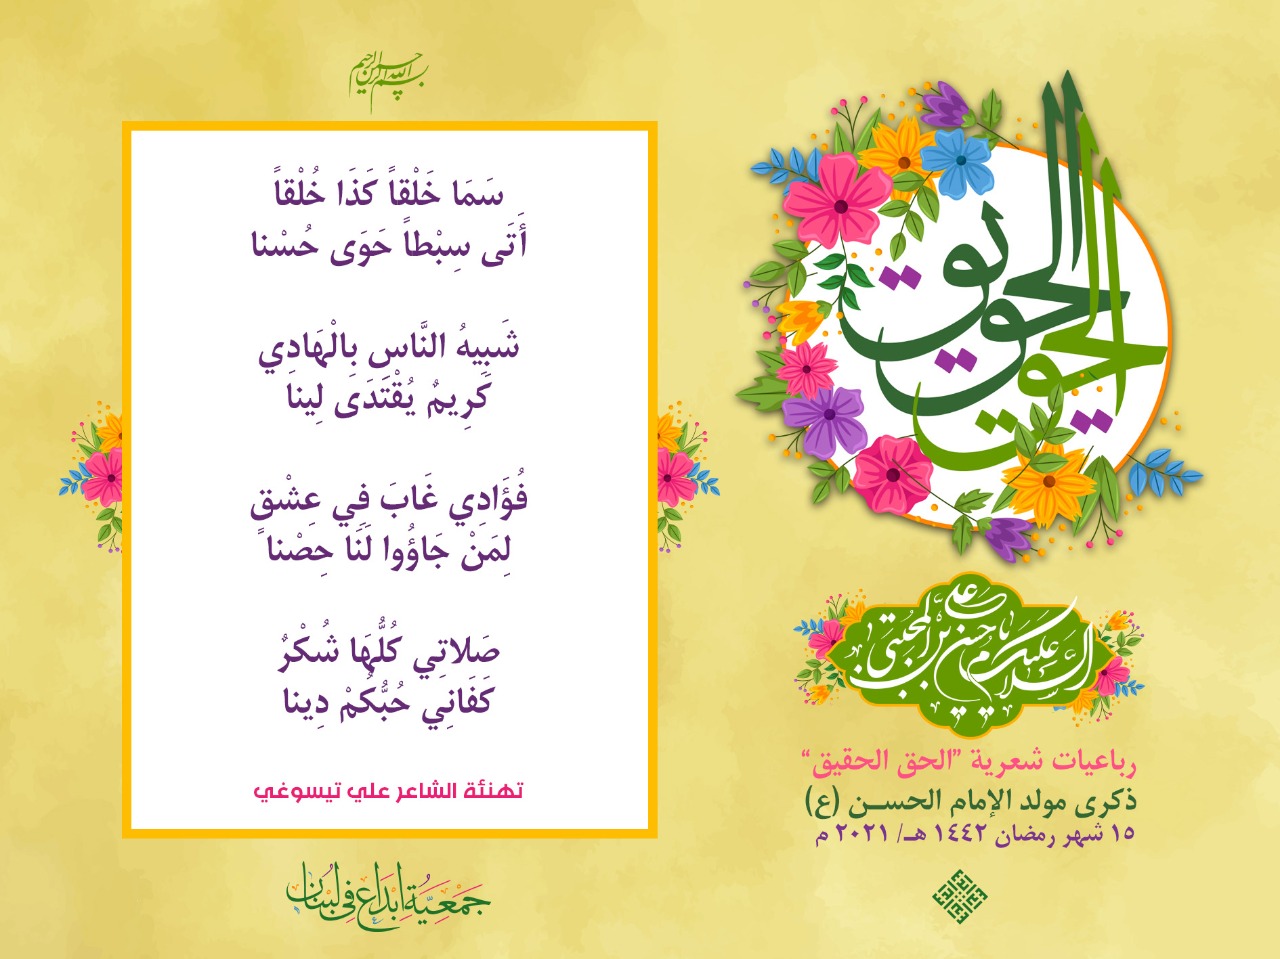 بسم الله الرحمن الرحيم
سَمَا خَلْقاً كَذَا خُلْقاً
أَتَى سِبْطاً حَوَى حُسْنا
شَبِيهُ النَّاسِ بِالْهَادِي
كَرِيمٌ يُقْتَدَى لِينا
فُؤَادِي غَابَ فِي عِشْقٍ
لِمَنْ جَاؤُوا لَنَا حِصْنا
صَلاتِي كُلُّهَا شُكْرٌ
كَفَانِي حُبُّكُمْ دِينا
تهنئة الشاعر علي تيسوغي
جَمْعِيَّة إبْدَاع في لبْنَان
الحق الحقيق
السلام عليكم يا حسن بن علي المجتبى
رباعيات شعرية "الحق الحقيق"
ذكرى مولد الإمام الحســن (ع)
١٥ شهر رمضان ١٤٤٢ هـ/ ٢٠٢١ م